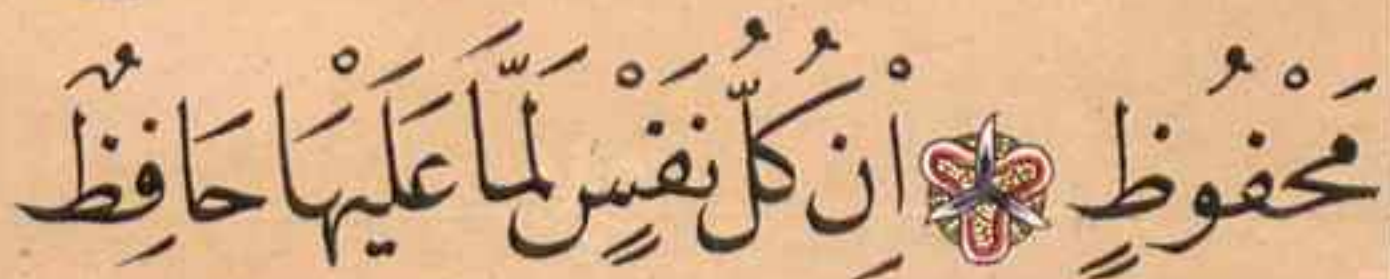 مَحْفُوظٍ اِنْ كُلُّ نَفْسٍ لَمَّا عَلَيْهَا حَافِظٌ